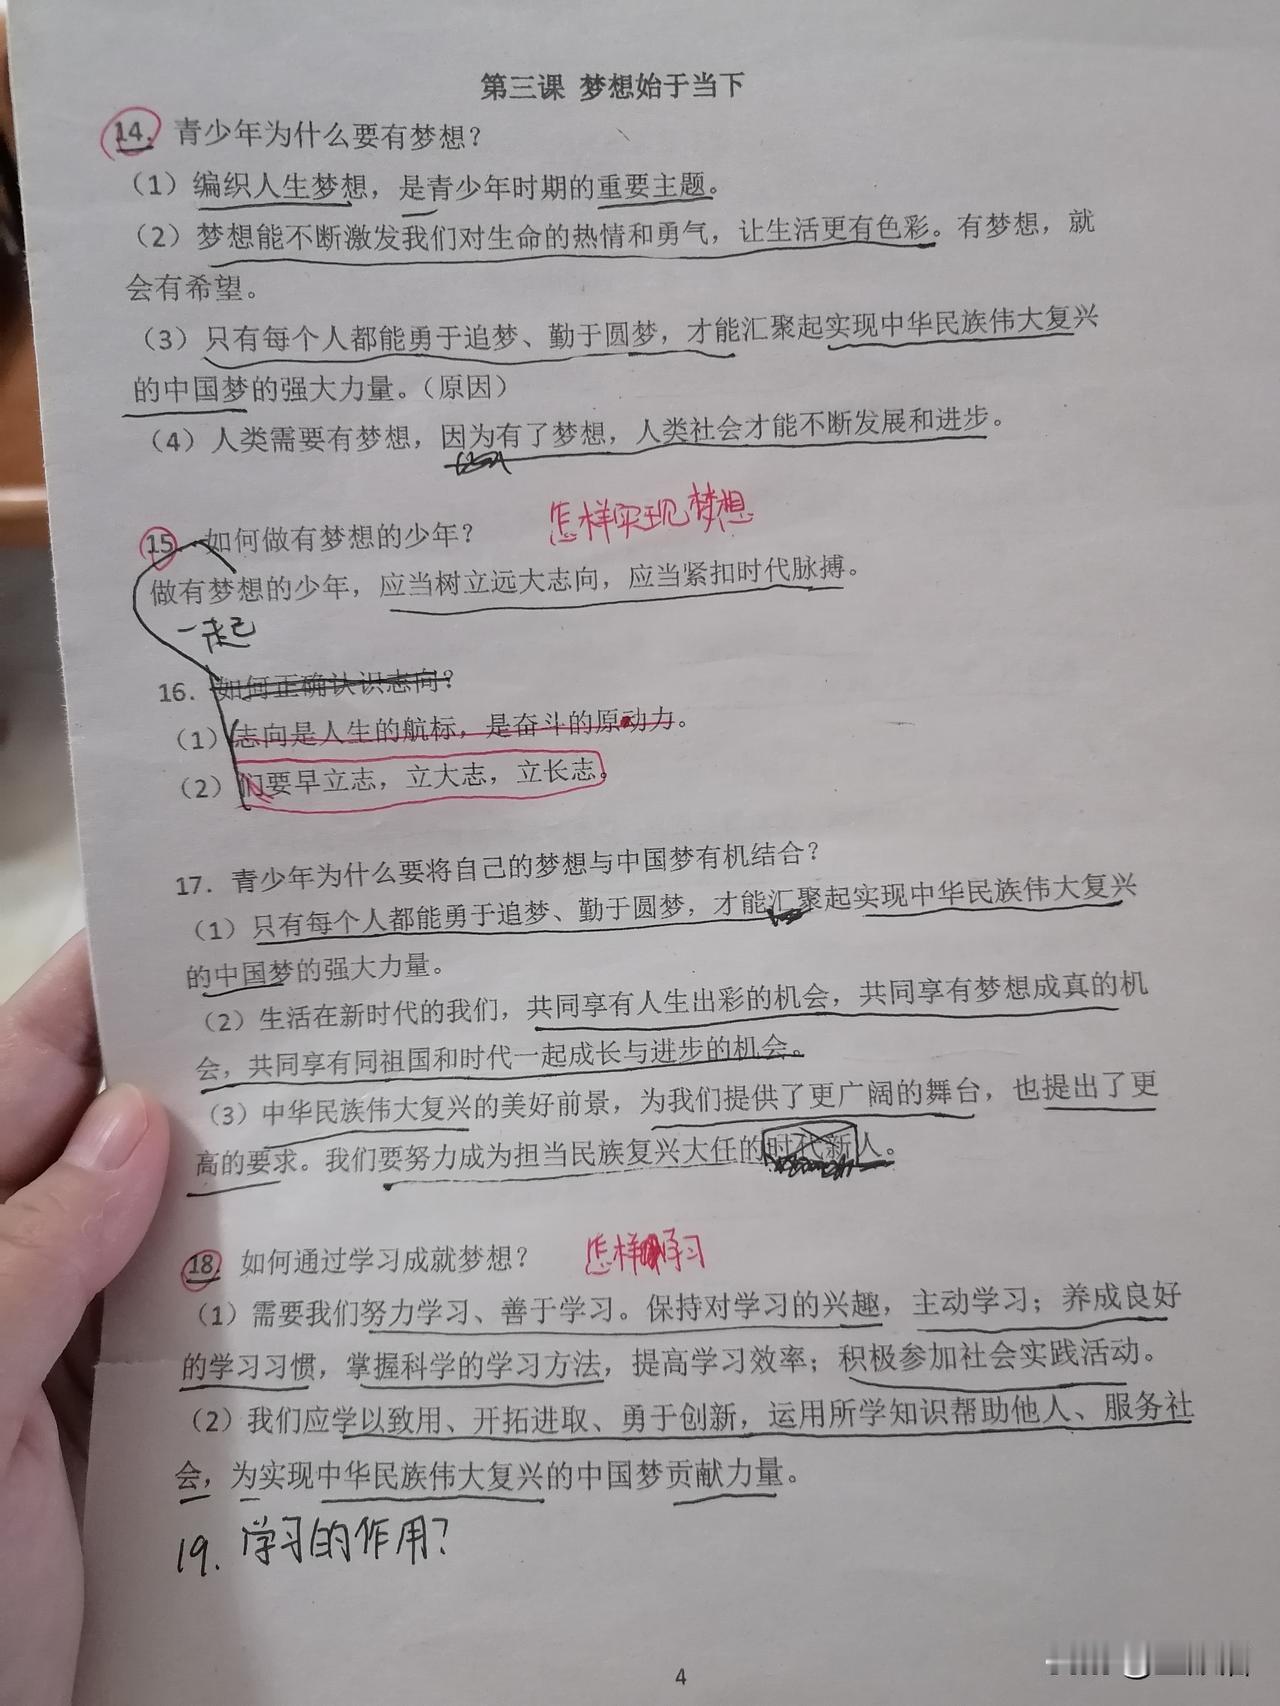 第三课 梦想始于当下
14. 青少年为什么要有梦想？
（1）编织人生梦想，是青少年时期的重要主题。
（2）梦想能不断激发我们对生命的热情和勇气，让生活更有色彩。有梦想，就
会有希望。
（3）只有每个人都能勇于追梦、勤于圆梦，才能汇聚起实现中华民族伟大复兴
的中国梦的强大力量。（原因）
（4）人类需要有梦想，因为有了梦想，人类社会才能不断发展和进步。
怎样实现梦想
15. 如何做有梦想的少年？
做有梦想的少年，应当树立远大志向，应当紧扣时代脉搏。
一起
16. 如何正确认识志向？
（1）志向是人生的航标，是奋斗的原动力。
（2）们要早立志，立大志，立长志。
17. 青少年为什么要将自己的梦想与中国梦有机结合？
（1）只有每个人都能勇于追梦、勤于圆梦，才能汇聚起实现中华民族伟大复兴
的中国梦的强大力量。
（2）生活在新时代的我们，共同享有人生出彩的机会，共同享有梦想成真的机
会，共同享有同祖国和时代一起成长与进步的机会。
（3）中华民族伟大复兴的美好前景，为我们提供了更广阔的舞台，也提出了更
高的要求。我们要努力成为担当民族复兴大任的时代新人。
18. 如何通过学习成就梦想？ 怎样学习
（1）需要我们努力学习、善于学习。保持对学习的兴趣，主动学习；养成良好
的学习习惯，掌握科学的学习方法，提高学习效率；积极参加社会实践活动。
（2）我们应学以致用、开拓进取、勇于创新，运用所学知识帮助他人、服务社
会，为实现中华民族伟大复兴的中国梦贡献力量。
19. 学习的作用？
4